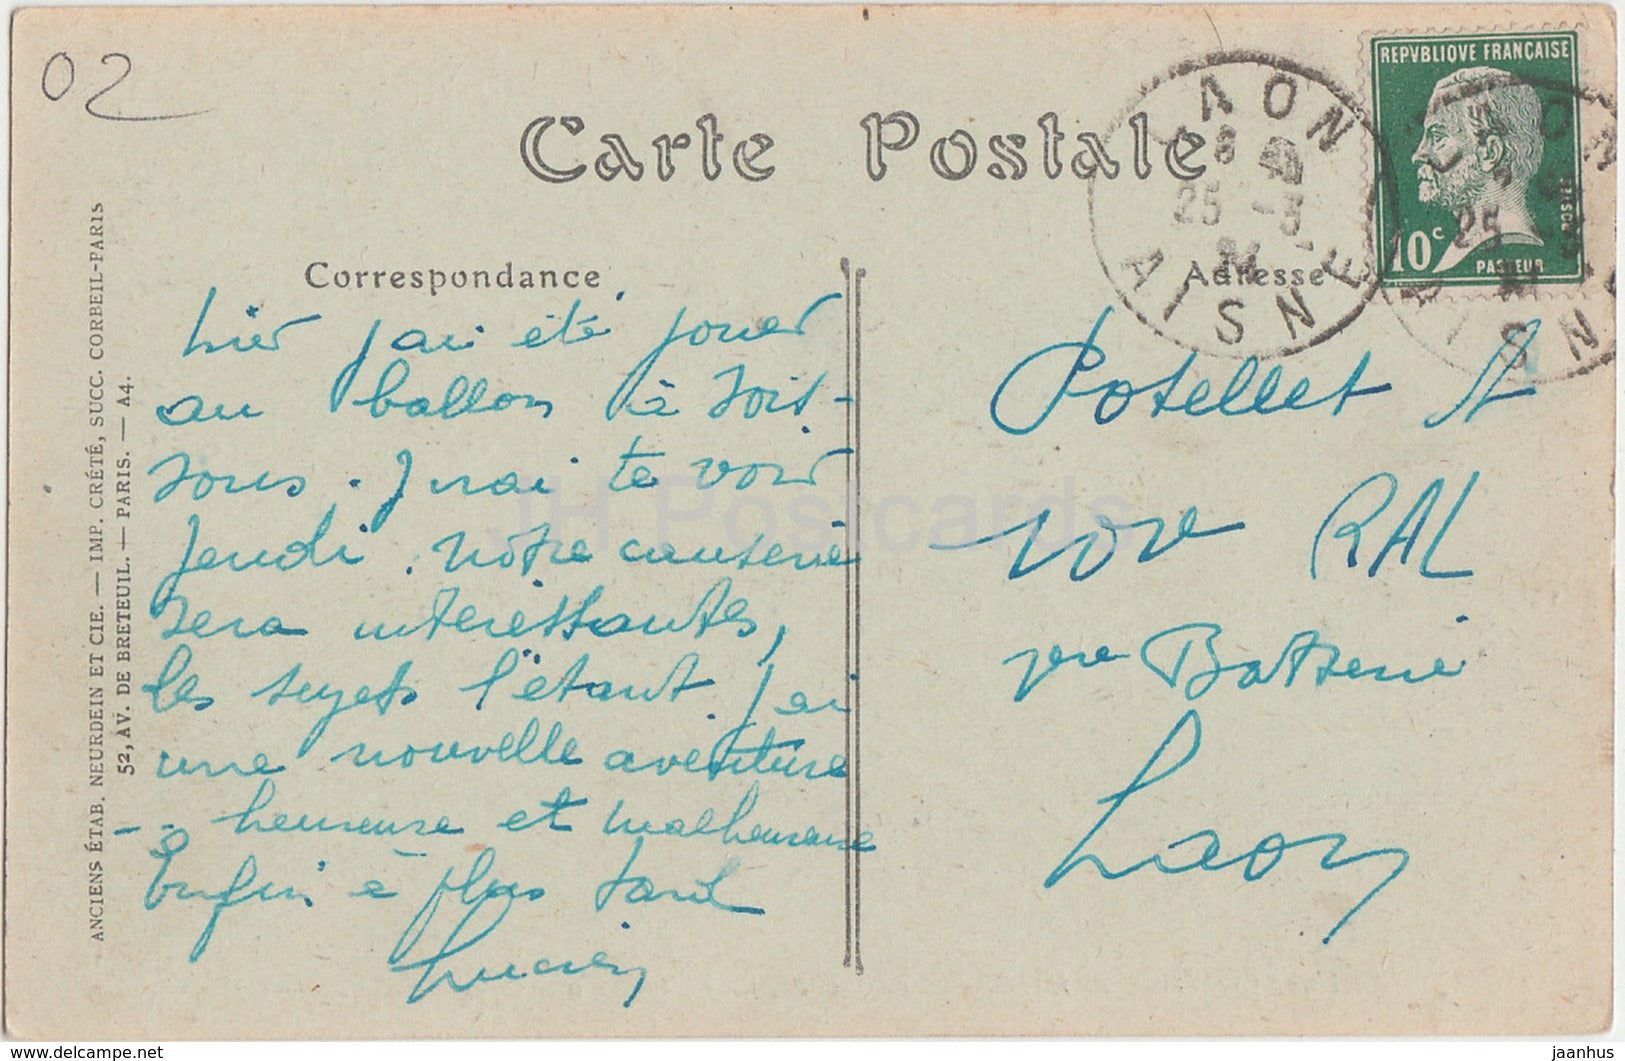 02
Carte Postale
REPVBLIQVE FRANÇAISE
10c
PASTEUR
POSTES
LAON
25 -3
AISNE
Correspondance
Adresse
hier j'ai été jouer
au ballon à Sois-
sons. J'irai te voir
jeudi. notre causerie
sera intéressantes,
les sujets l'étant. J'ai
une nouvelle aventure
-- heureuse et malheureuse
Enfin à plus tard
Lucien
Potellet
RAL
Batterie
Laon
ANCIENS ÉTAB. NEURDEIN ET CIE. — IMP. CRÉTÉ, SUCC. CORBEIL-PARIS
52, AV. DE BRETEUIL. — PARIS. — A4.
JH Postcards
www.delcampe.net
jaanhus